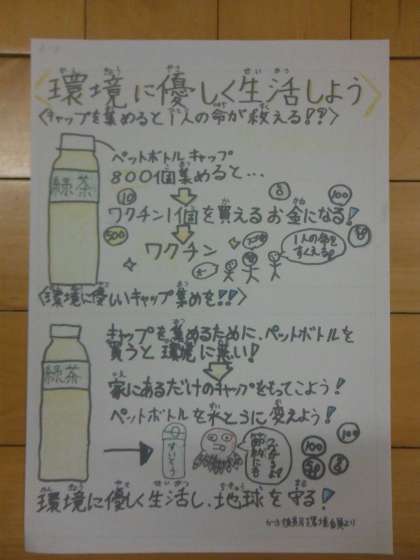 環境に優しく生活しよう
キャップを集めると1人の命が救える!?
ペットボトルキャップ
緑茶
800個集めると…
ワクチン1個を買えるお金になる!
10
100
500
ワクチン
1人の命を
すくえる
環境に優しいキャップ集めを!!
キャップを集めるために、ペットボトルを
買うと環境に悪い!
緑茶
家にあるだけのキャップをもってこよう!
ペットボトルを水とうに変えよう!
すいとう
100
100
環境に優しく生活し、地球を守る!